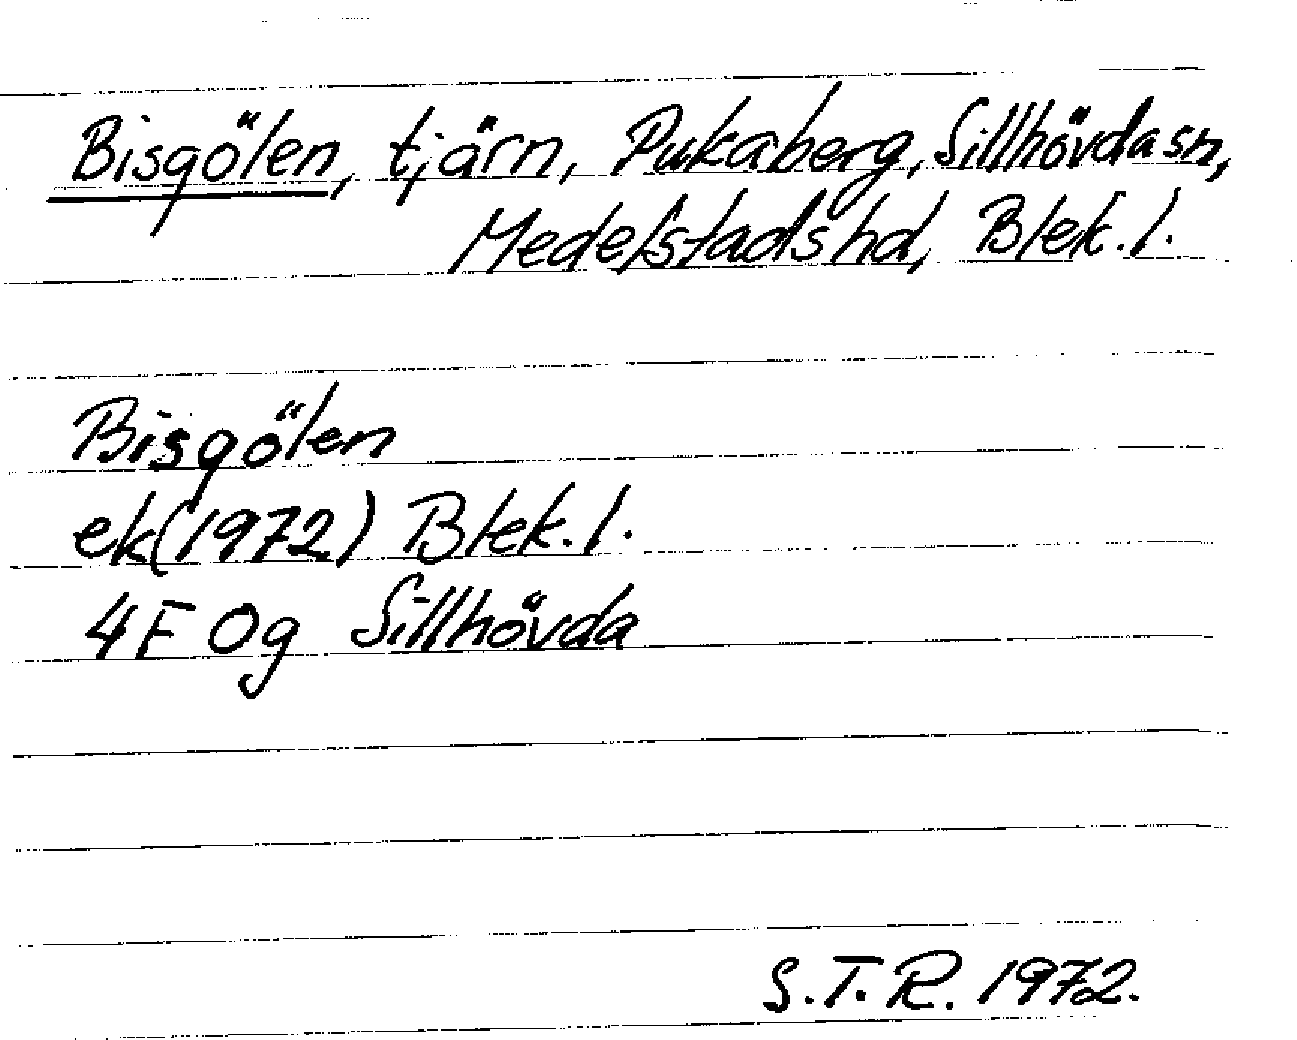 Bisgölen, tjärn, Pukaberg, Sillhövda sn,
Medelstads hd, Blek. l.
Bisgölen
ek(1972) Blek. l.
4F 0g Sillhövda
S.T.R. 1972.